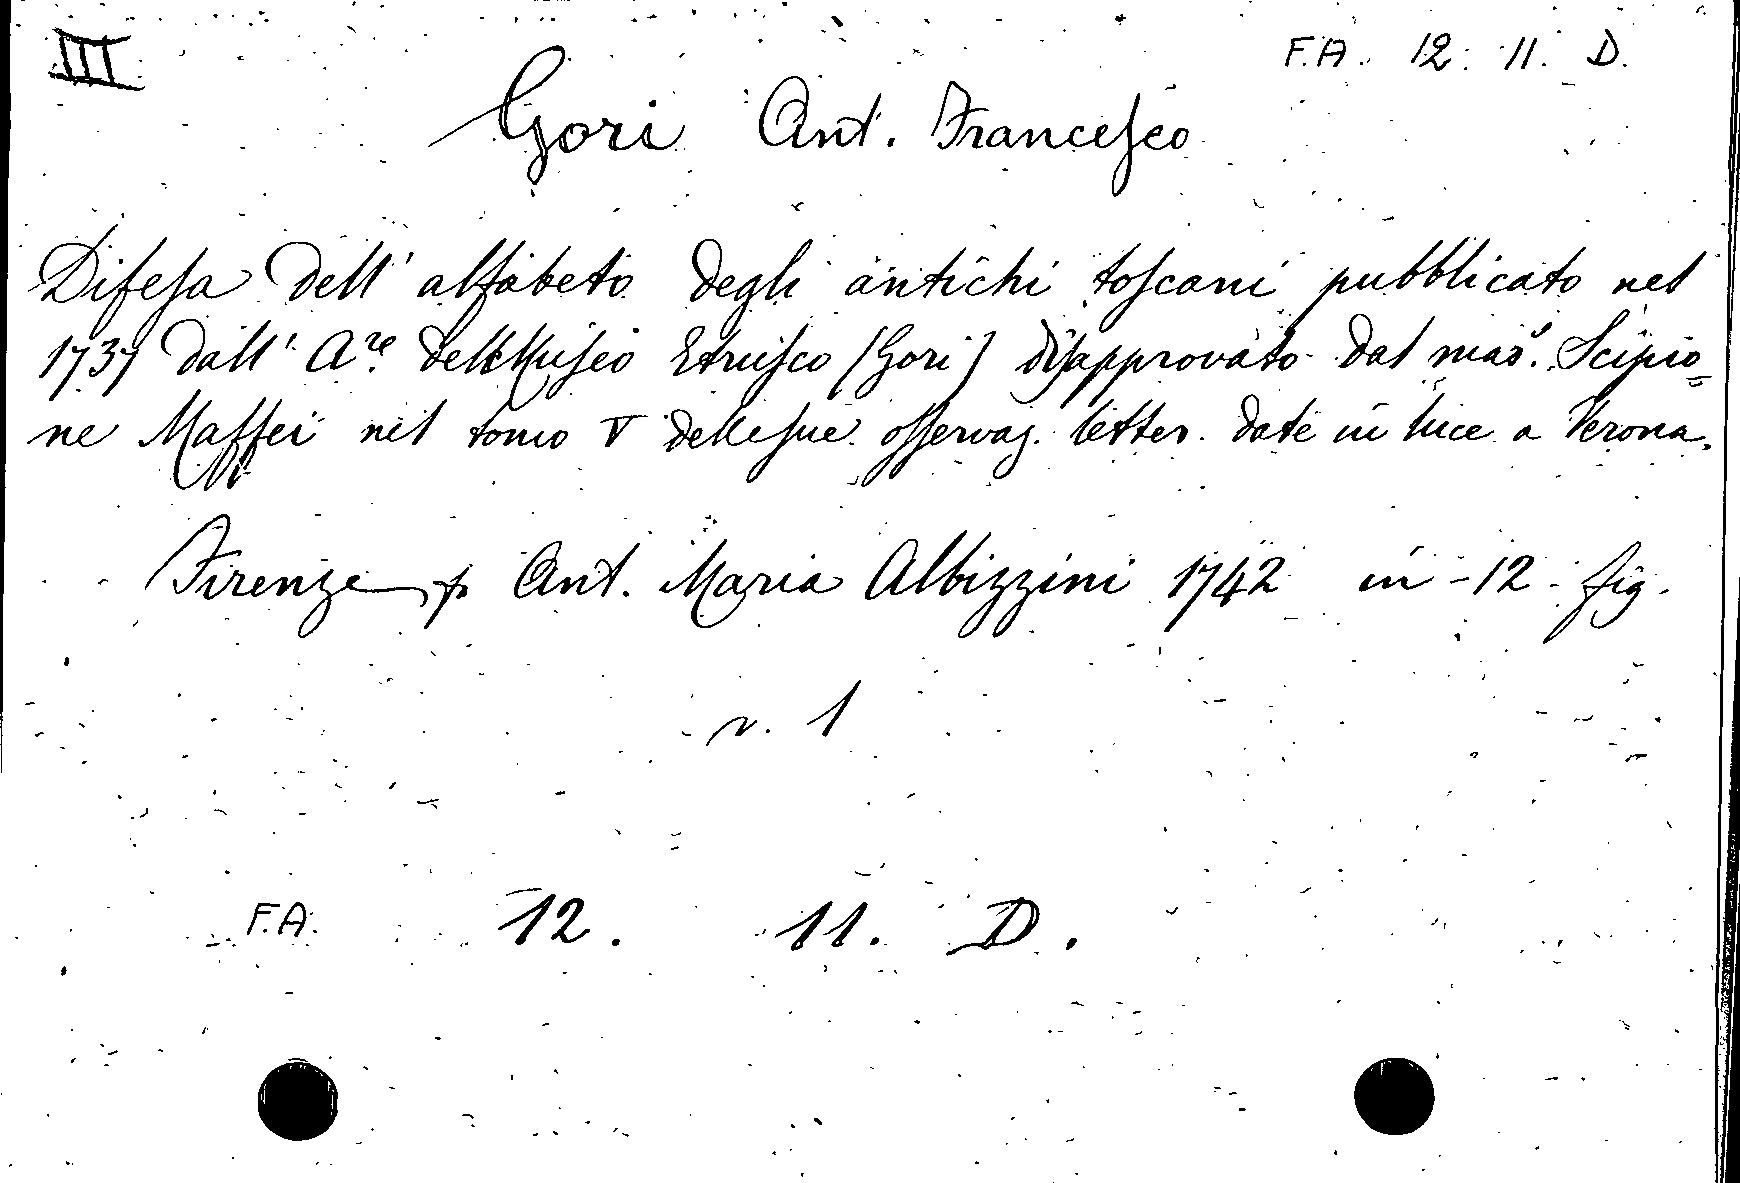 III
F.A. 12. 11. D.
Gori Ant. Francesco
Difesa dell' alfabeto degli antichi toscani pubblicato nel
1737 dall' A.re del Museo Etrusco (Gori) disapprovato dal mar. Scipio=
ne Maffei nel tomo V delle sue osservaz. letter. date in luce a Verona.
Firenze, p. Ant. Maria Albizzini 1742 in-12. fig.
v. 1
F.A. 12. 11. D.